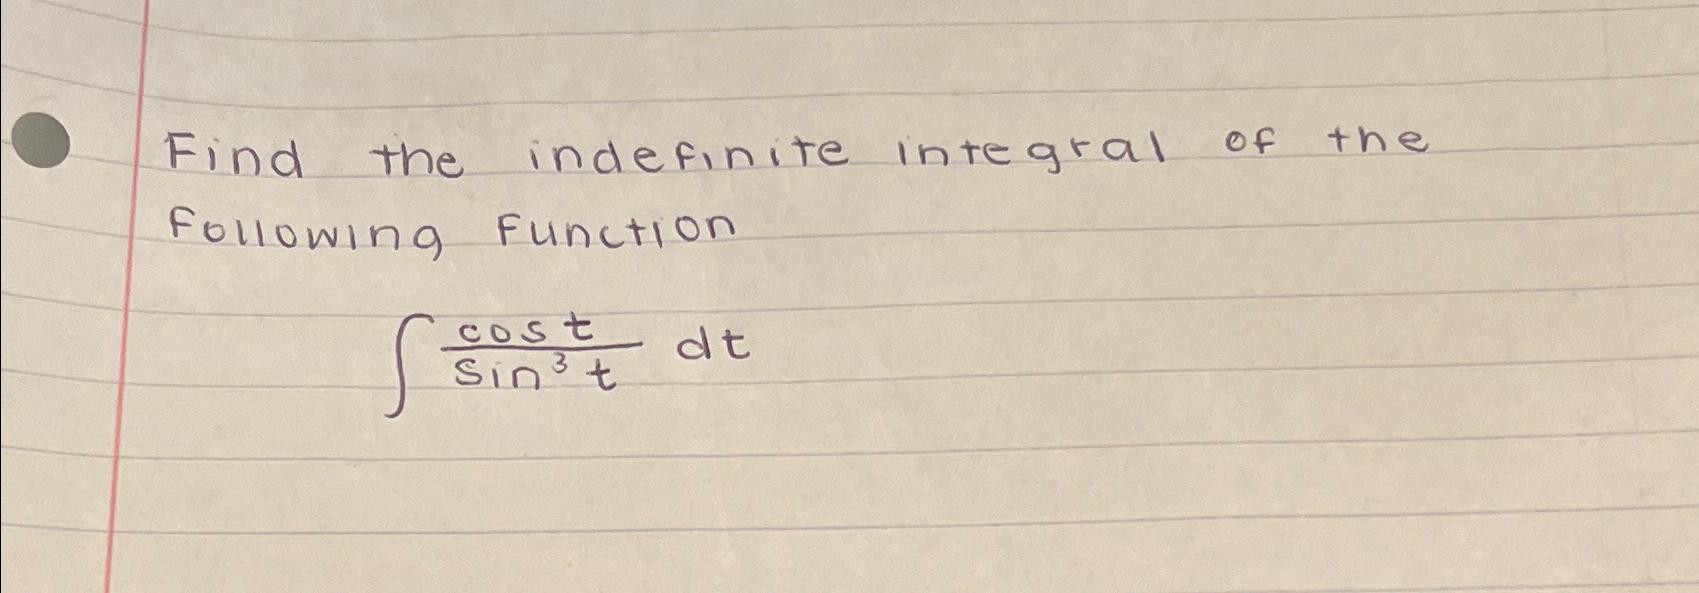 Find the indefinite integral of the
following function
∫ cos t / sin³ t dt